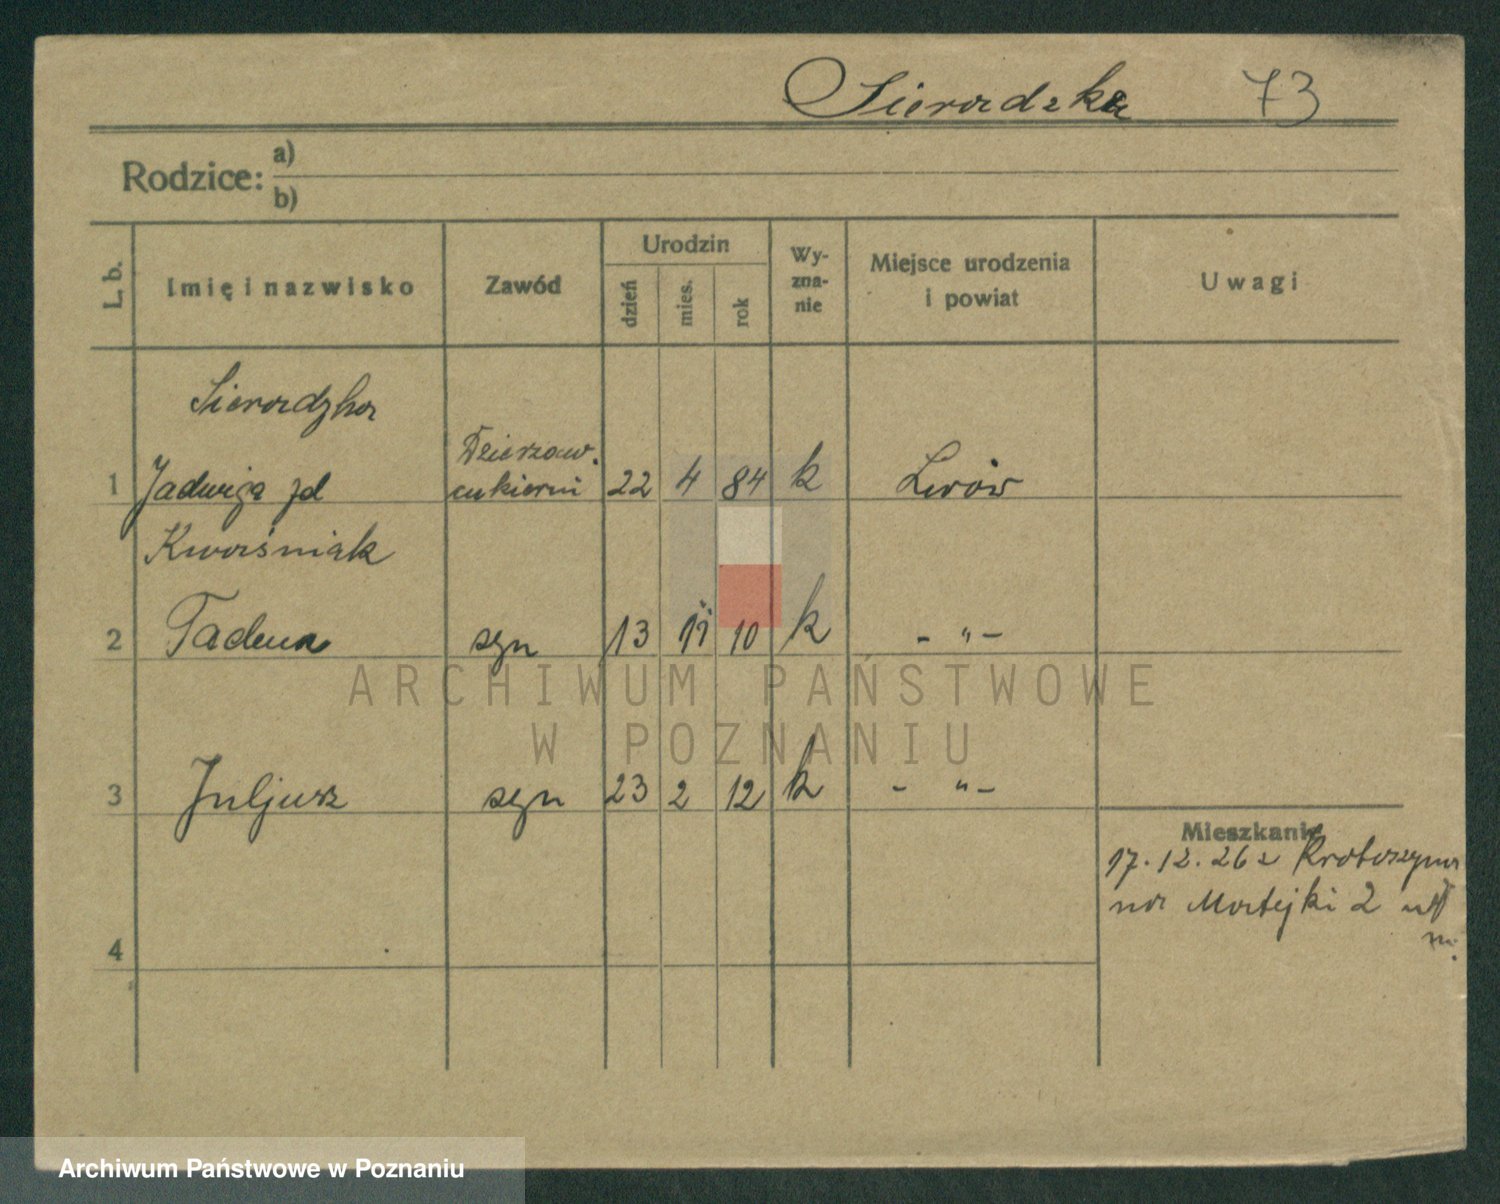 Sieradzka 73
Rodzice: a)
b)
L. b. Imię i nazwisko Zawód Urodzin dzień mies. rok Wy-zna-nie Miejsce urodzenia i powiat Uwagi
Sieradzka
Dzierżaw.
1 Jadwiga cukierni 22 4 84 k Lwów
Kwaśniak
2 Tadeusz syn 13 11 10 k - " -
ARCHIWUM PAŃSTWOWE
W POZNANIU
3 Juljusz syn 23 2 12 k - " -
Mieszkanie
17.12.26 z Krotoszyna
na Matejki 2
4
Archiwum Państwowe w Poznaniu